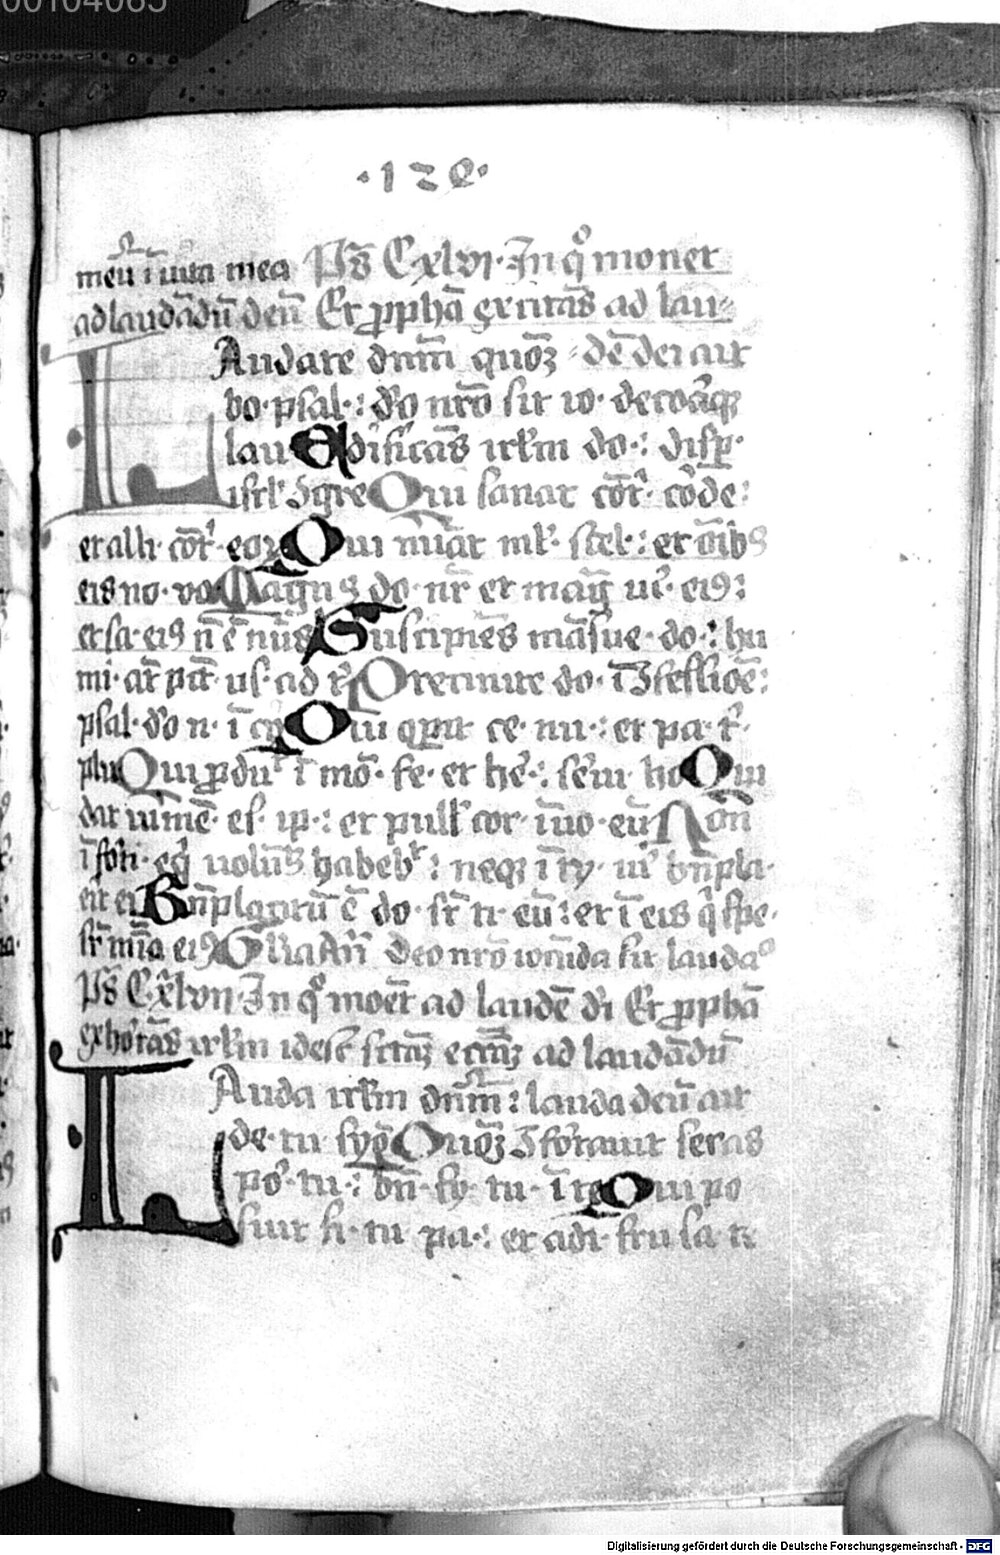 00104065
·120·
meū ī uita mea Ps̄ Cxlvi· In q° monet
ad laudādū deū Et ꝓphā exitās ad lau-
LAudate dn̄m quōꝫ
bo· psal·: dō nr̄o sit io· decorāqꝫ
lau Edificās irl̄m do·: disp̄·
isrl̄ ꝯgre Qui sanat cōt̄· corde:
et alli· cōt̄· eoꝝ Qui nūat ml̄· stel·: et oībꝰ
eis no· vo Magnꝰ do· nr̄ et maḡ uiꝰ eiꝰ:
et sa· eiꝰ n̄ ē nūs Suscipiēs māsue· do·: hu
mi· at̄ pct̄· us· ad tr̄ Precinite do· ī ꝯfessiōe:
psal· dō n· ī cy Qui opit ce· nu·: et pa· t̄·
plu Qui ꝓduc̄ ī mō· fe· et he·: seru· ho Qui
dat iumē· es· ip·: et pull̄ cor· īuo· eū Non
ī forti· eq̄ uolūs habeb̄: neqꝫ ī ty· ui· bn̄pla·
eit ei Bn̄placitū ē do· sr̄ ti· eū: et ī eis q̄ spe·
sr̄ mīa eiꝰ Gl̄ia
deo nr̄o iocūda sit laudaº
Ps̄ Cxlvii· In q° moet ad laudē di Et ꝓphā
exhortās irl̄m idest
ad laudādū
LAuda irl̄m dn̄m: lauda deū
de· tu syō Quōꝫ ꝯfortauit seras
por· tu·: bn̄· fy· tu· ī te Qui po
suit fi· tu pa·: et adi· fru sa· te
Digitalisierung gefördert durch die Deutsche Forschungsgemeinschaft - DFG